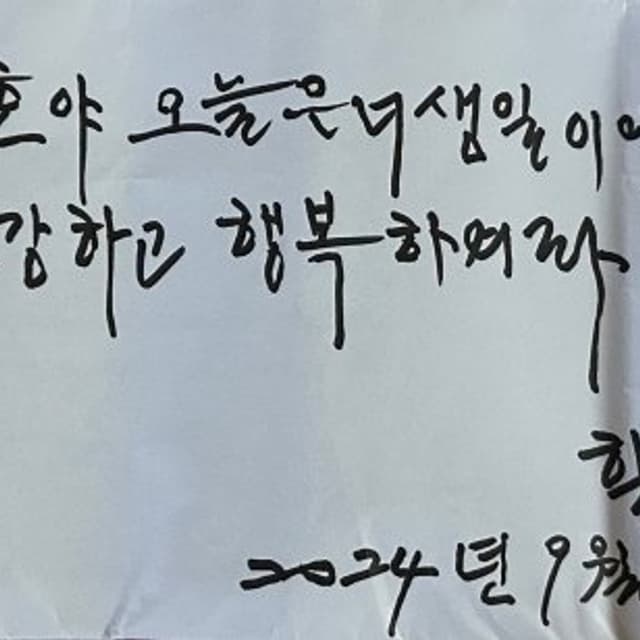 호야 오늘은 너 생일이
강하고 행복하여라
2024년 9월